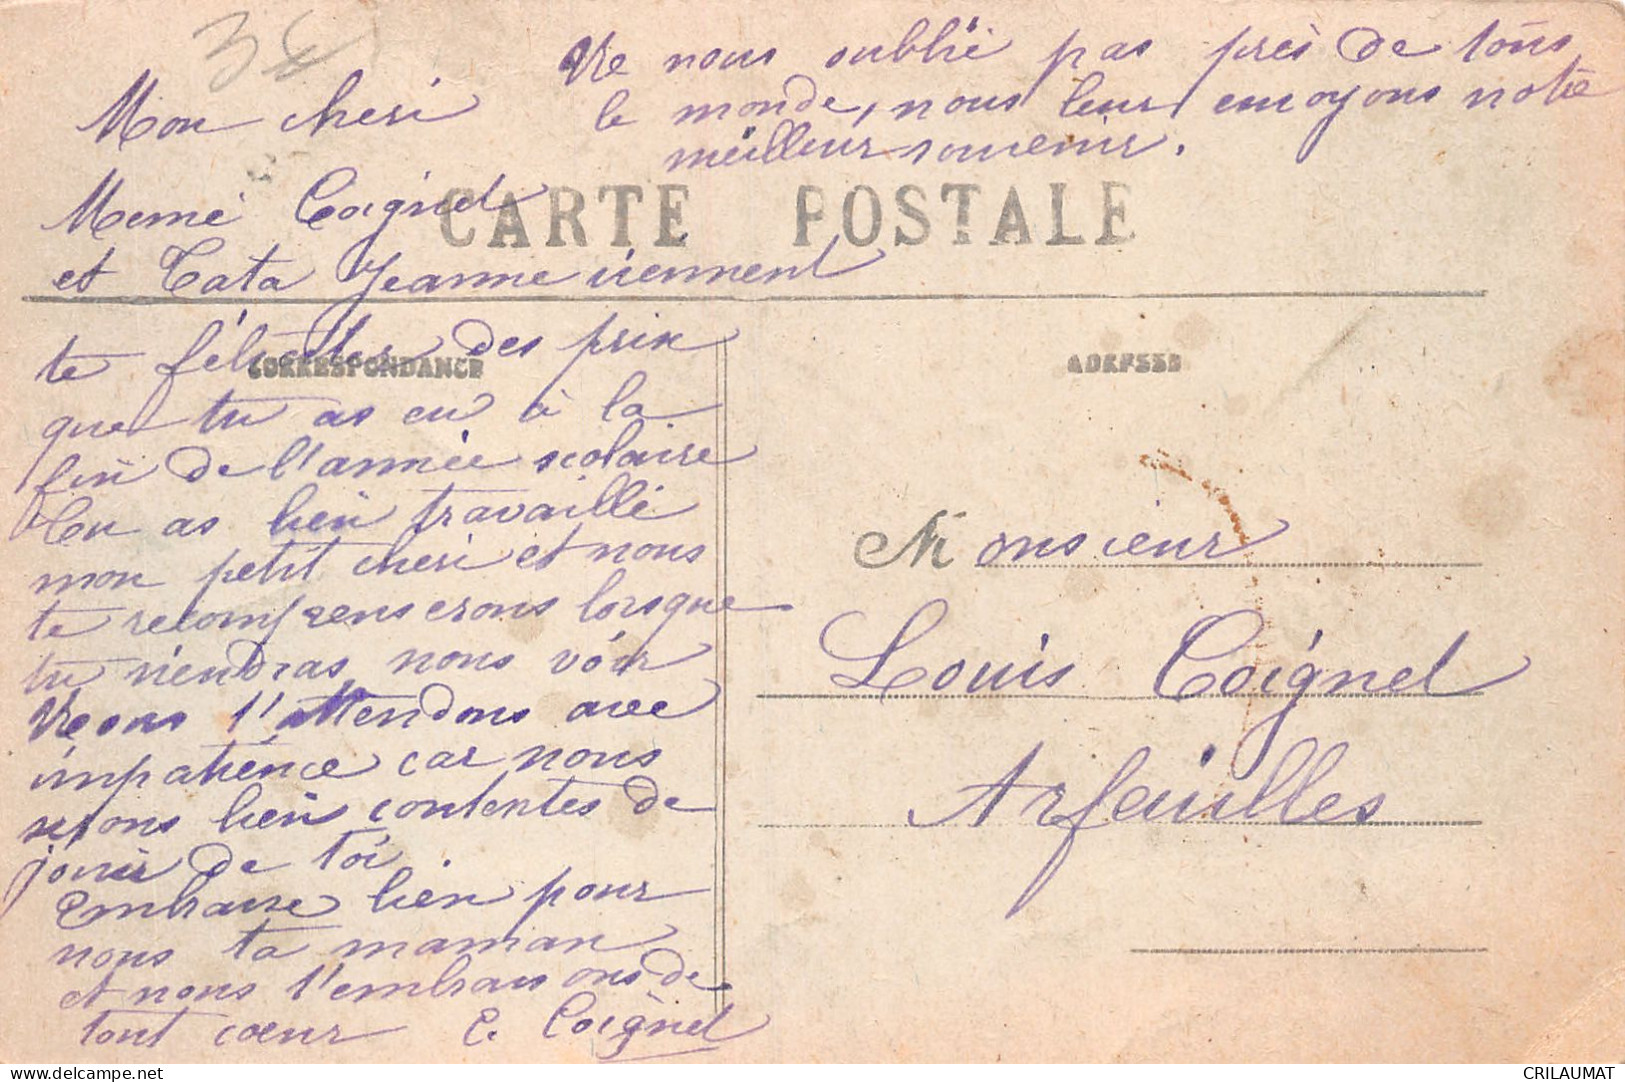 3€
Mon cheri
Memé Coignet
et Tata Jeanne viennent
te féliciter des prix
que tu as eu à la
fin de l'année scolaire
Tu as bien travaillé
mon petit cheri et nous
te recompenserons lorsque
tu viendras nous voir
Nous t'attendons avec
impatience car nous
serons bien contentes de
jouir de toi
Embrasse bien pour
nous ta maman
et nous t'embrassons de
tout cœur C. Coignet
Ne nous oublie pas près de tous
le monde, nous leur envoyons notre
meilleur souvenir.
CARTE POSTALE
CORRESPONDANCE
ADRESSE
Monsieur
Louis Coignet
Arfeuilles
CRILAUMAT